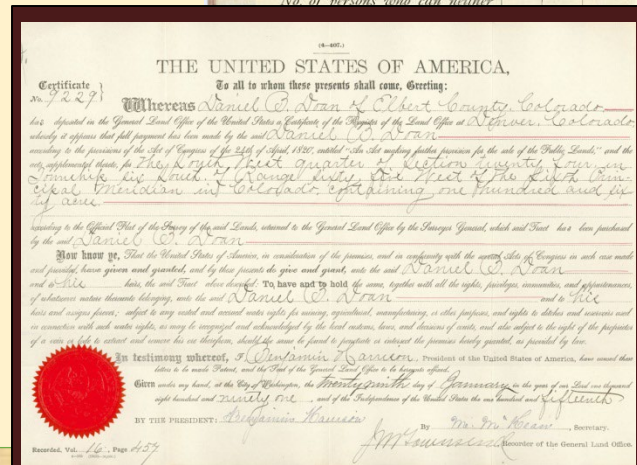 No. of persons who can neither
(4—407.)
THE UNITED STATES OF AMERICA,
Certificate
No. 9229
To all to whom these presents shall come, Greeting:
Whereas Daniel B. Doan of Elbert County, Colorado
has deposited in the General Land Office of the United States a Certificate of the Register of the Land Office at Denver, Colorado,
whereby it appears that full payment has been made by the said Daniel B. Doan
according to the provisions of the Act of Congress of the 24th of April, 1820, entitled "An Act making further provision for the sale of the Public Lands," and the
acts supplemental thereto, for the South West quarter of Section twenty four, in
Township six South, of Range sixty five West of the Sixth Prin-
cipal Meridian in Colorado, containing one hundred and six-
ty acres
according to the Official Plat of the Survey of the said Lands, returned to the General Land Office by the Surveyor General, which said Tract has been purchased
by the said Daniel B. Doan
Now know ye, That the United States of America, in consideration of the premises, and in conformity with the several Acts of Congress in such case made
and provided, have given and granted, and by these presents do give and grant, unto the said Daniel B. Doan
and to his heirs, the said Tract above described: To have and to hold the same, together with all the rights, privileges, immunities, and appurtenances,
of whatsoever nature thereunto belonging, unto the said Daniel B. Doan and to his
heirs and assigns forever; subject to any vested and accrued water rights for mining, agricultural, manufacturing, or other purposes, and rights to ditches and reservoirs used
in connection with such water rights, as may be recognized and acknowledged by the local customs, laws, and decisions of courts, and also subject to the right of the proprietor
of a vein or lode to extract and remove his ore therefrom, should the same be found to penetrate or intersect the premises hereby granted, as provided by law.
In testimony whereof, I, Benjamin Harrison, President of the United States of America, have caused these
letters to be made Patent, and the Seal of the General Land Office to be hereunto affixed.
Given under my hand, at the City of Washington, the twenty ninth day of January, in the year of our Lord one thousand
eight hundred and ninety one, and of the Independence of the United States the one hundred and fifteenth
BY THE PRESIDENT: Benjamin Harrison
By M. McKean, Secretary.
J. M. Townsend, Recorder of the General Land Office.
Recorded, Vol. 16, Page 457